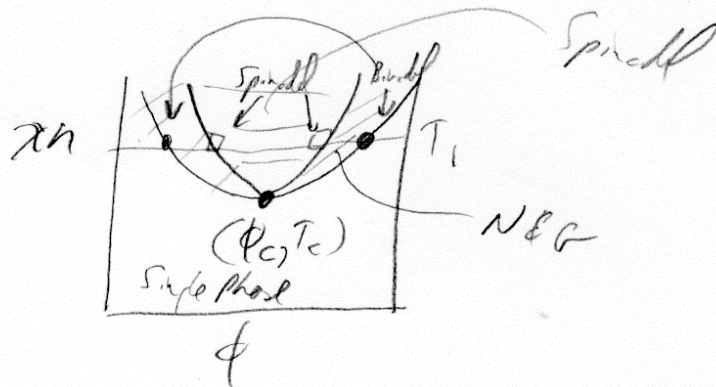 Spinodal
Spinodal
Binodal
χn
T₁
N&G
(ϕc, Tc)
Single Phase
ϕ